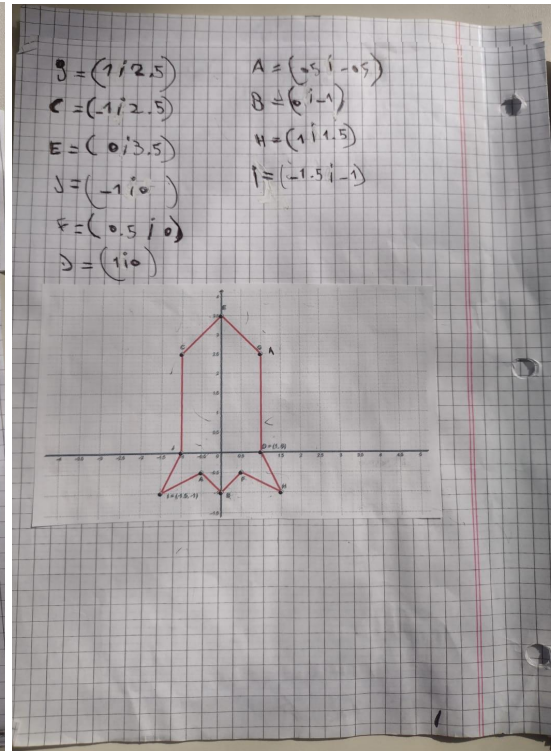 g = (1;2.5)
C = (-1;2.5)
E = (0;3.5)
J = (-1;0)
F = (0.5;0)
D = (1;0)
A = (05;-05)
B = (0;-1)
H = (1;1.5)
i = (-1.5;-1)
E
C
A
J
D = (1, 0)
A
F
I = (-1.5, -1)
B
H